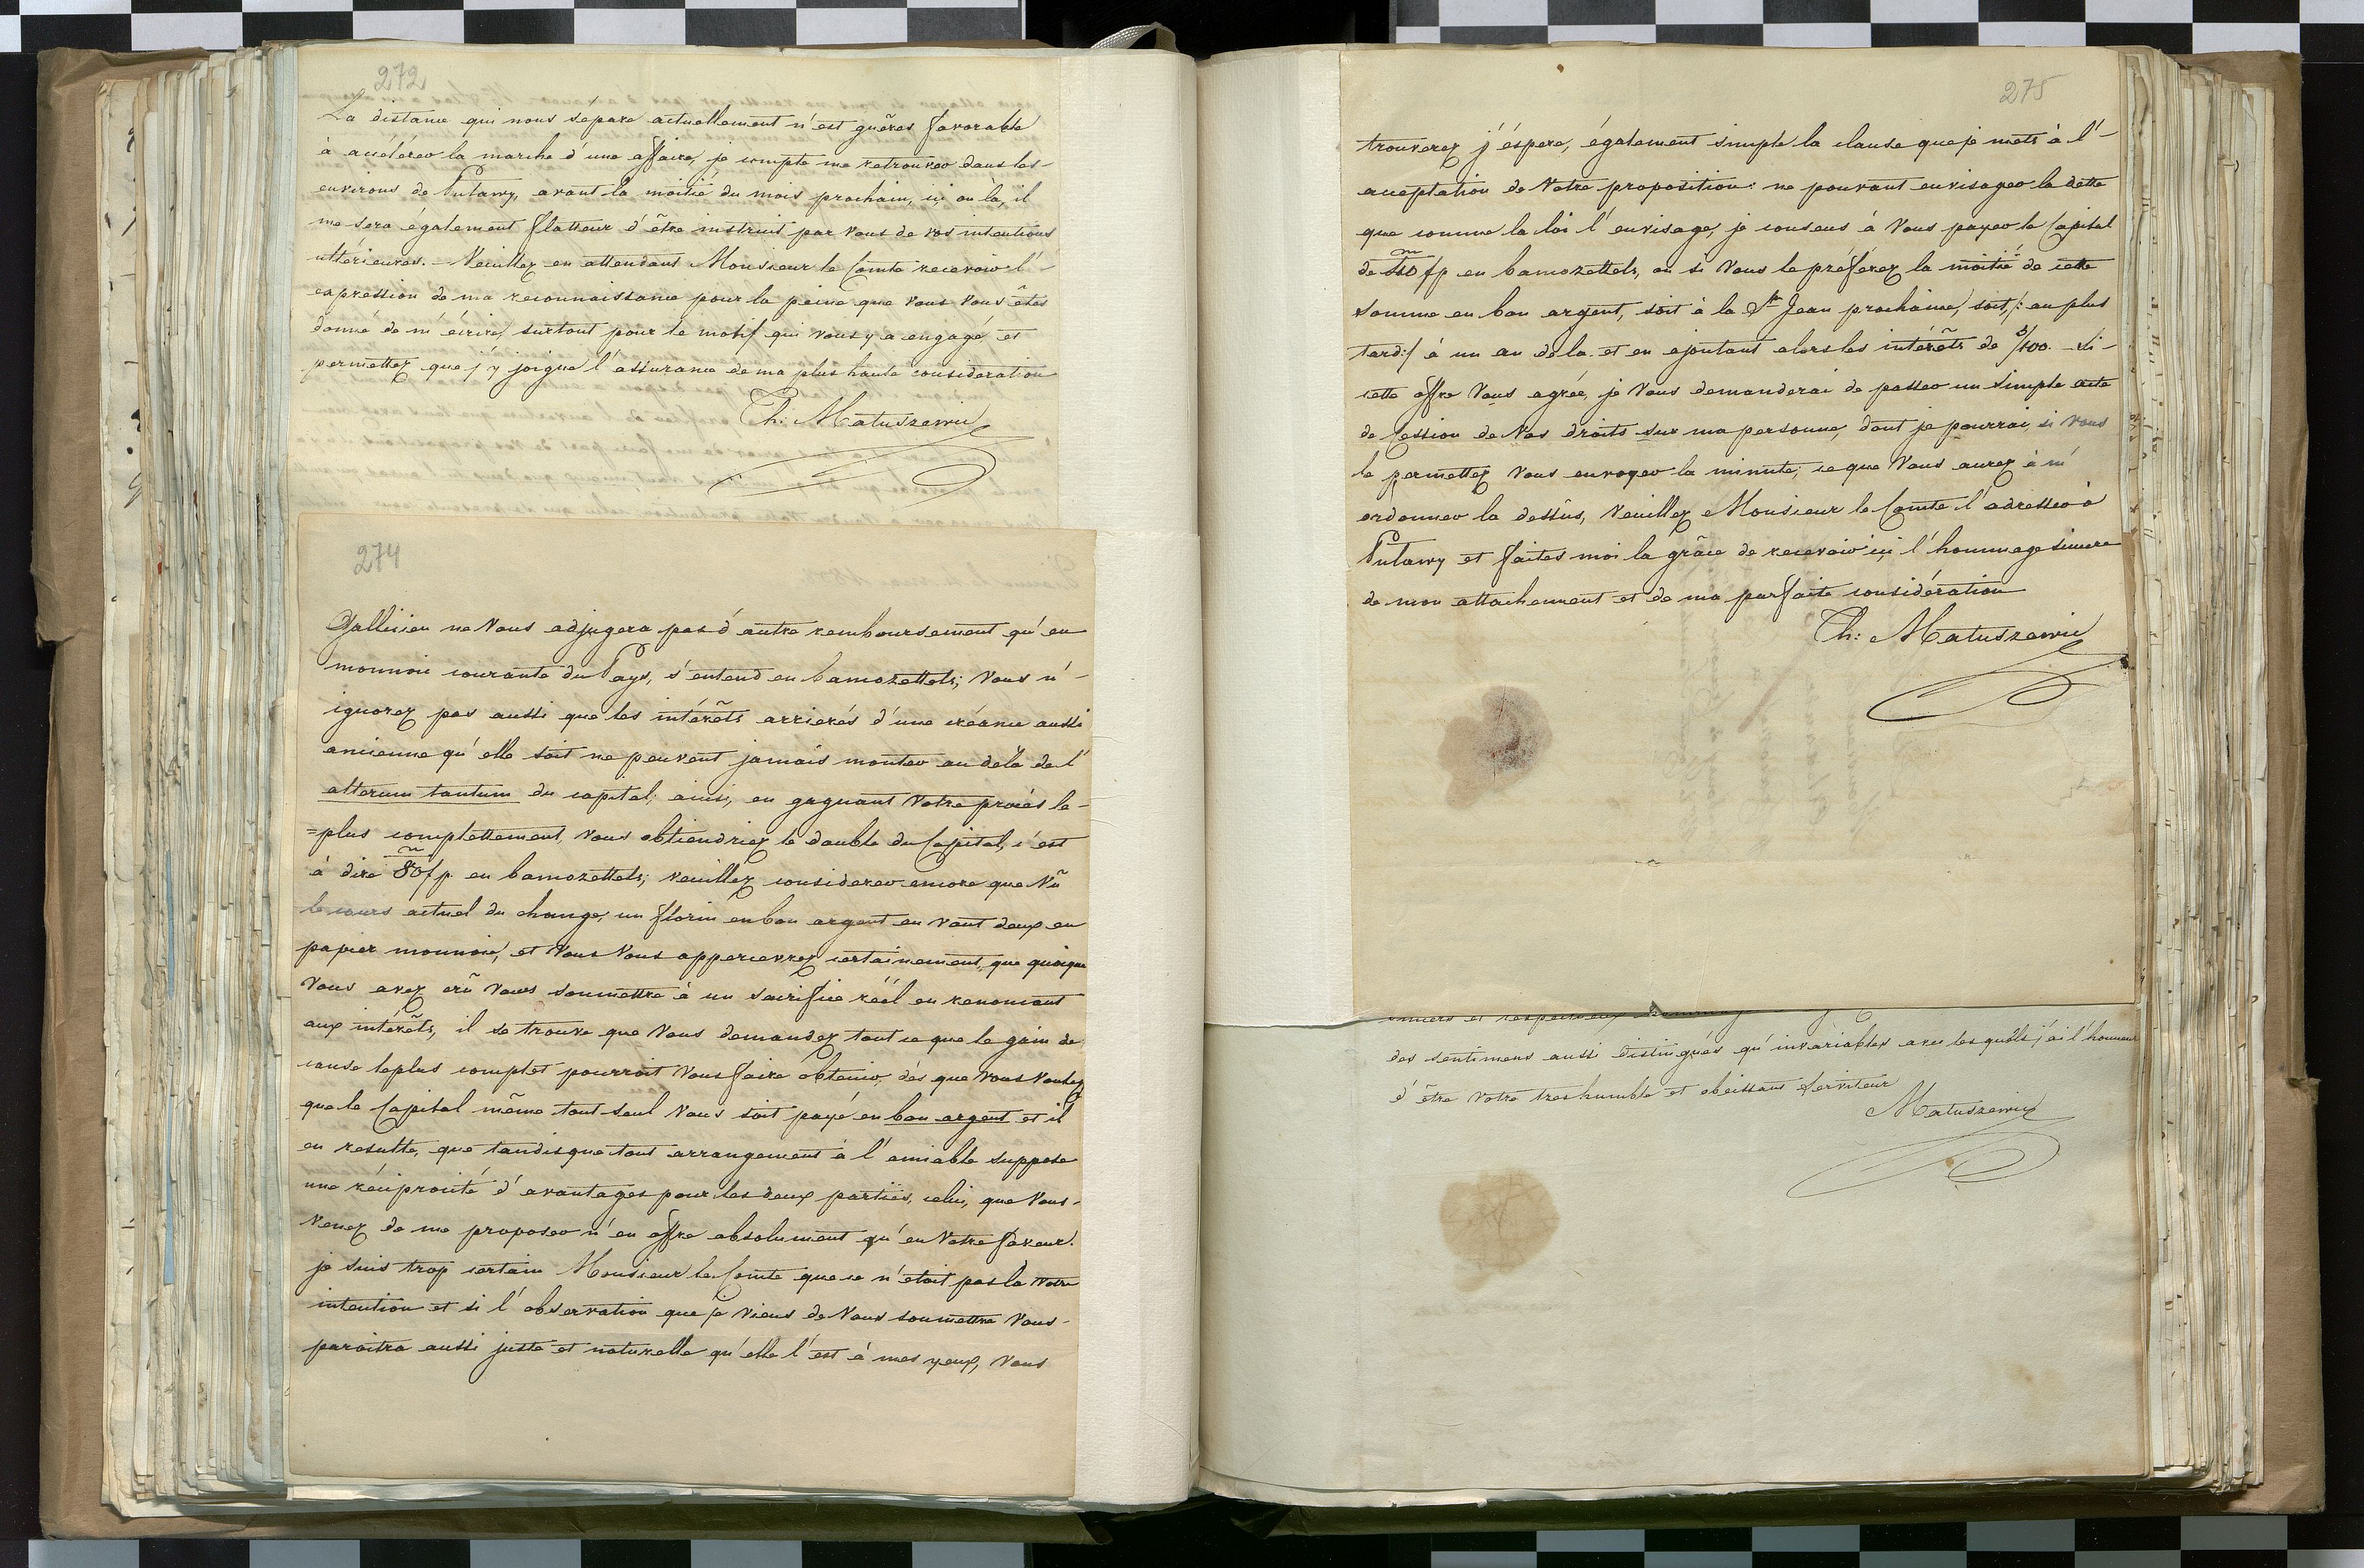 272
La distance qui nous sépare actuellement n'est guères favorable
à accélérer la marche d'une affaire, je compte me retrouver dans les
environs de Pulawy, avant la moitié du mois prochain, ici ou là, il
me sera également flatteur d'être instruit par Vous de vos intentions
ultérieures. – Veuillez en attendant Monsieur le Comte recevoir l'-
expression de ma reconnaissance pour la peine que Vous Vous êtes
donné de m'écrire, surtout pour le motif qui Vous y a engagé, et
permettez que j'y joigne l'assurance de ma plus haute considération
Th: Matuszewic
274
Gallicien ne Vous adjugera pas d'autre remboursement qu'en
monnoie courante du Pays, s'entend en bamozettels; Vous n'-
ignorez pas aussi que les intérêts arrierés d'une créance aussi
ancienne qu'elle soit ne peuvent jamais monter au delà de l'
alterum tantum du capital; ainsi, en gagnant Votre procés le-
=plus complettement, Vous obtiendriez le double du Capital, c'est
à dire 80 fp. en bamozettels; veuillez considerer encore que Vû
le cours actuel du change, un florin en bon argent en vaut deux en
papier monnoie, et Vous Vous appercevrez certainement, que quoique
Vous avez crû Vous soumettre à un sacrifice réèl en renoncant
aux intérêts, il se trouve que Vous demandez tout ce que le gain de
cause le plus complet pourroit Vous faire obtenir, dès que Vous Voulez
que le Capital même tout seul Vous soit payé en bon argent et il
en resulte, que tandis que tout arrangement à l'amiable suppose
une réciprocité d'avantages pour les deux parties, celui, que Vous-
Venez de me proposer n'en offre absolument qu'en Votre faveur.
je suis trop certain Monsieur le Comte que ce n'etoit pas la Votre
intention et si l'observation que je Viens de Vous soumettre Vous-
paroitra aussi juste et naturelle qu'elle l'est à mes yeux, Vous
275
trouverez j'éspere, également simple la clause que je mets à l'-
acceptation de Votre proposition: ne pouvant envisager la dette
que comme la loi l'envisage, je consens à Vous payer le Capital
de fp en bamozettels, ou si Vous le préférez la moitié de cette
somme en bon argent, soit à la St Jean prochaine, soit /: au plus
tard :/ à un an de la et en ajoutant alors les intérêts de 5/100. – Si-
cette offre Vous agrée, je Vous demanderai de passer un simple acte
de Cession de Vos droits sur ma personne, dont je pourrai, si Vous
le permettez Vous envoyer la minute; ce que Vous aurez à m'
ordonner la dessûs, Veuillez Monsieur le Comte l'adresser à
Pulawy et faites moi la grâce de recevoir içi l'hommage sincere
de mon attachement et de ma parfaite considération
Th: Matuszewic
et respectueux
des sentimens aussi distingués qu'invariables avec lesquels j'ai l'honneur
d'être Votre tres humble et obeissant Serviteur
Matuszewic